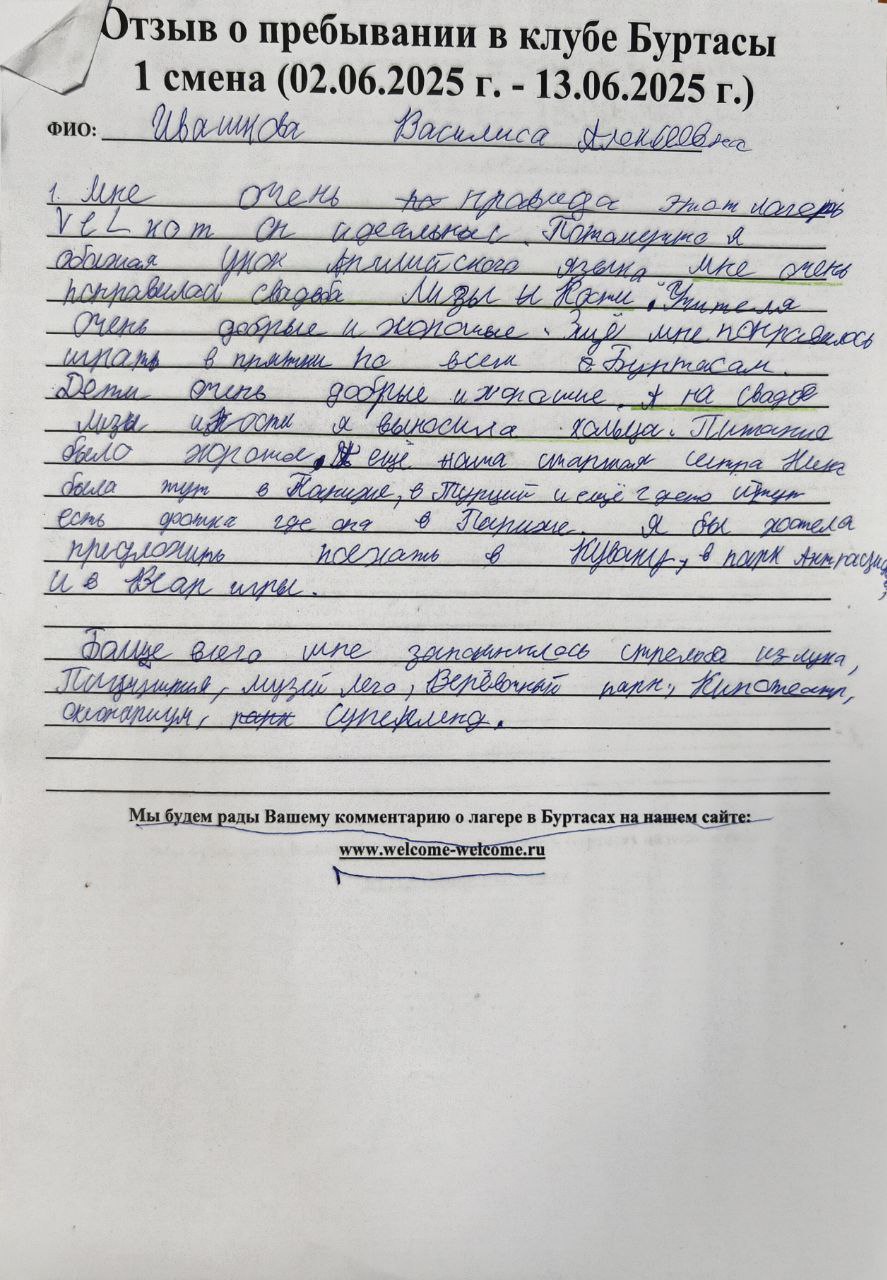 Отзыв о пребывании в клубе Буртасы
1 смена (02.06.2025 г. - 13.06.2025 г.)
ФИО: Ивашкова Василиса Алексеевна
1. Мне очень этот лагерь
VelKom он идеальный. Потомучто я
обажаю урок Английского языка мне очень
понравилась свадьба Лизы и Кости. Учителя
очень добрые и хорошие. Ещё мне понравилось
играть в прятки по всем Буртасам.
Дети очень добрые и хорошие. А на свадбе
Лизы и Кости я выносила кольца. Питание
было хорошее. И ещё наша старшая сестра Ника
была тут в Париже, в Турции и ещё гдето и тут
есть фотка где она в Париже. Я бы хотела
предложить поехать в Куваку, в парк
и в игры.
Больще всего мне запомнилось стрельба из лука,
музей лего, Верёвочный парк, Кинотеатр,
Суперленд.
Мы будем рады Вашему комментарию о лагере в Буртасах на нашем сайте:
www.welcome-welcome.ru